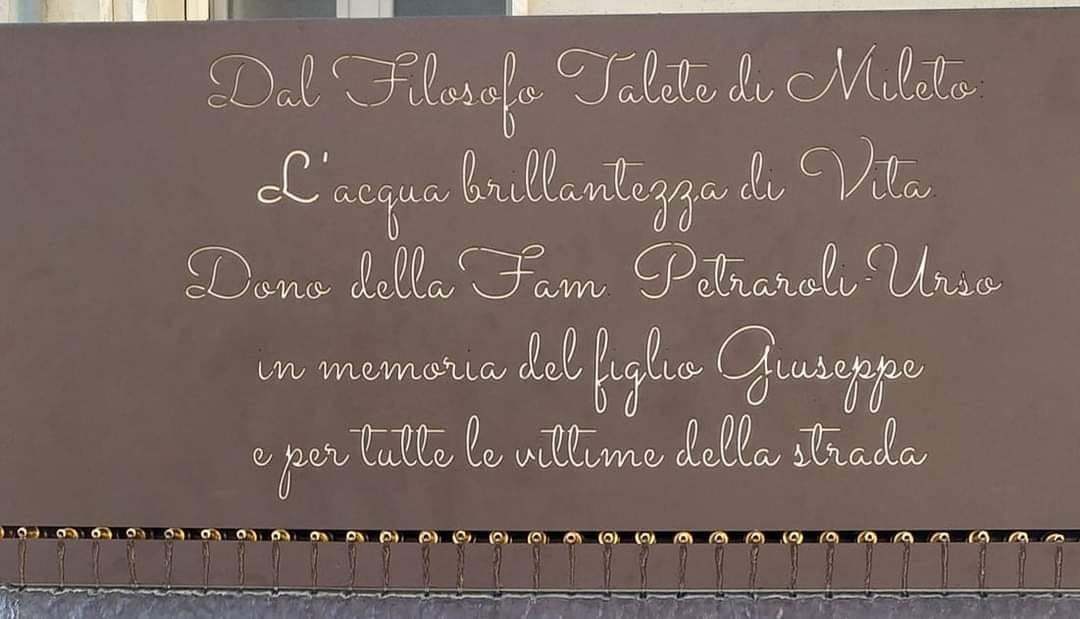 Dal Filosofo Talete di Mileto:
L'acqua brillantezza di Vita.
Dono della Fam. Petraroli-Urso
in memoria del figlio Giuseppe
e per tutte le vittime della strada